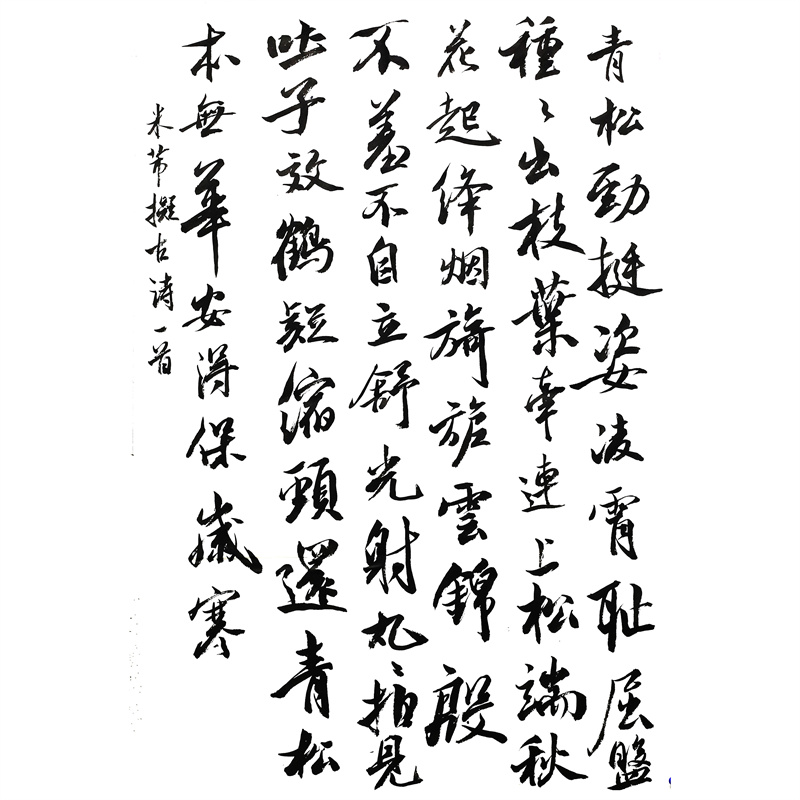 青松勁挺姿凌霄耻屈盤
種〻出枝葉牽連上松端秋
花起絳烟旖旎雲錦殷
不羞不自立舒光射丸〻柏見
吐子效鶴疑縮頸還青松
本無華安得保歲寒
米芾擬古詩一首